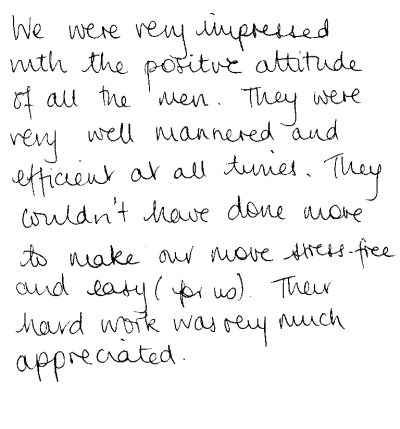 We were very impressed
with the positive attitude
of all the men. They were
very well mannered and
efficient at all times. They
couldn't have done more
to make our move stress-free
and easy (for us). Their
hard work was very much
appreciated.